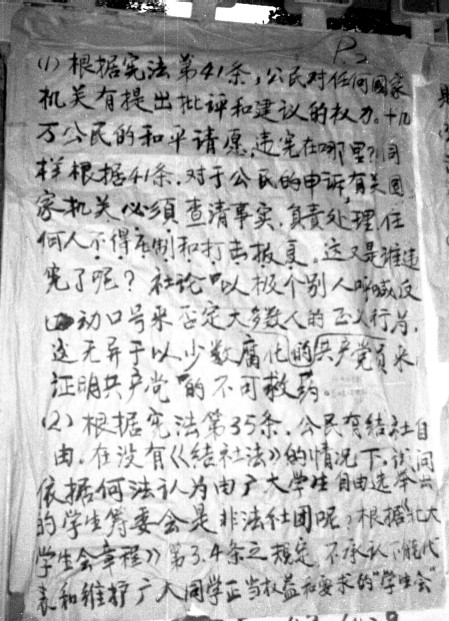 P.2
(1) 根据宪法第41条，公民对任何國家
机关有提出批评和建议的权力。十几
万公民的和平请愿，违宪在哪里？同
样根据41条，对于公民的申诉，有关国
家机关必须查清事实，负责处理，任
何人不得压制和打击报复。这又是谁违
宪了呢？社论“以极个别人呼喊反
动口号来否定大多数人的正义行为，
这无异于以少数腐化的共产党员来
证明共产党”的不可救药
(2) 根据宪法第35条，公民有结社自
由，在没有《结社法》的情况下，试问
依据何法认为由广大学生自由选举出
的学生筹委会是非法社团呢？根据《北大
学生会章程》第3.4条之规定，不承认不能代
表和维护广大同学正当权益和要求的“学生会”